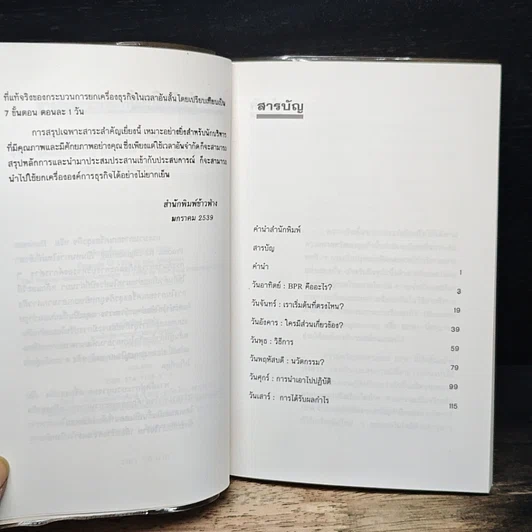 ที่แท้จริงของกระบวนการยกเครื่องธุรกิจในเวลาอันสั้น โดยเปรียบเทียบเป็น
7 ขั้นตอน ตอนละ 1 วัน
การสรุปเฉพาะสาระสำคัญเยี่ยงนี้ เหมาะอย่างยิ่งสำหรับนักบริหาร
ที่มีคุณภาพและมีศักยภาพอย่างคุณ ซึ่งเพียงแต่ใช้เวลาอันจำกัด ก็จะสามารถ
สรุปหลักการและนำมาประสมประสานเข้ากับประสบการณ์ ก็จะสามารถ
นำไปใช้ยกเครื่ององค์การธุรกิจได้อย่างไม่ยากเย็น
สำนักพิมพ์ข้าวฟ่าง
มกราคม 2539
สารบัญ
คำนำสำนักพิมพ์
สารบัญ
คำนำ 1
วันอาทิตย์ : BPR คืออะไร? 3
วันจันทร์ : เราเริ่มต้นที่ตรงไหน? 19
วันอังคาร : ใครมีส่วนเกี่ยวข้อง? 39
วันพุธ : วิธีการ 59
วันพฤหัสบดี : นวัตกรรม? 79
วันศุกร์ : การนำเอาไปปฏิบัติ 99
วันเสาร์ : การได้รับผลกำไร 115